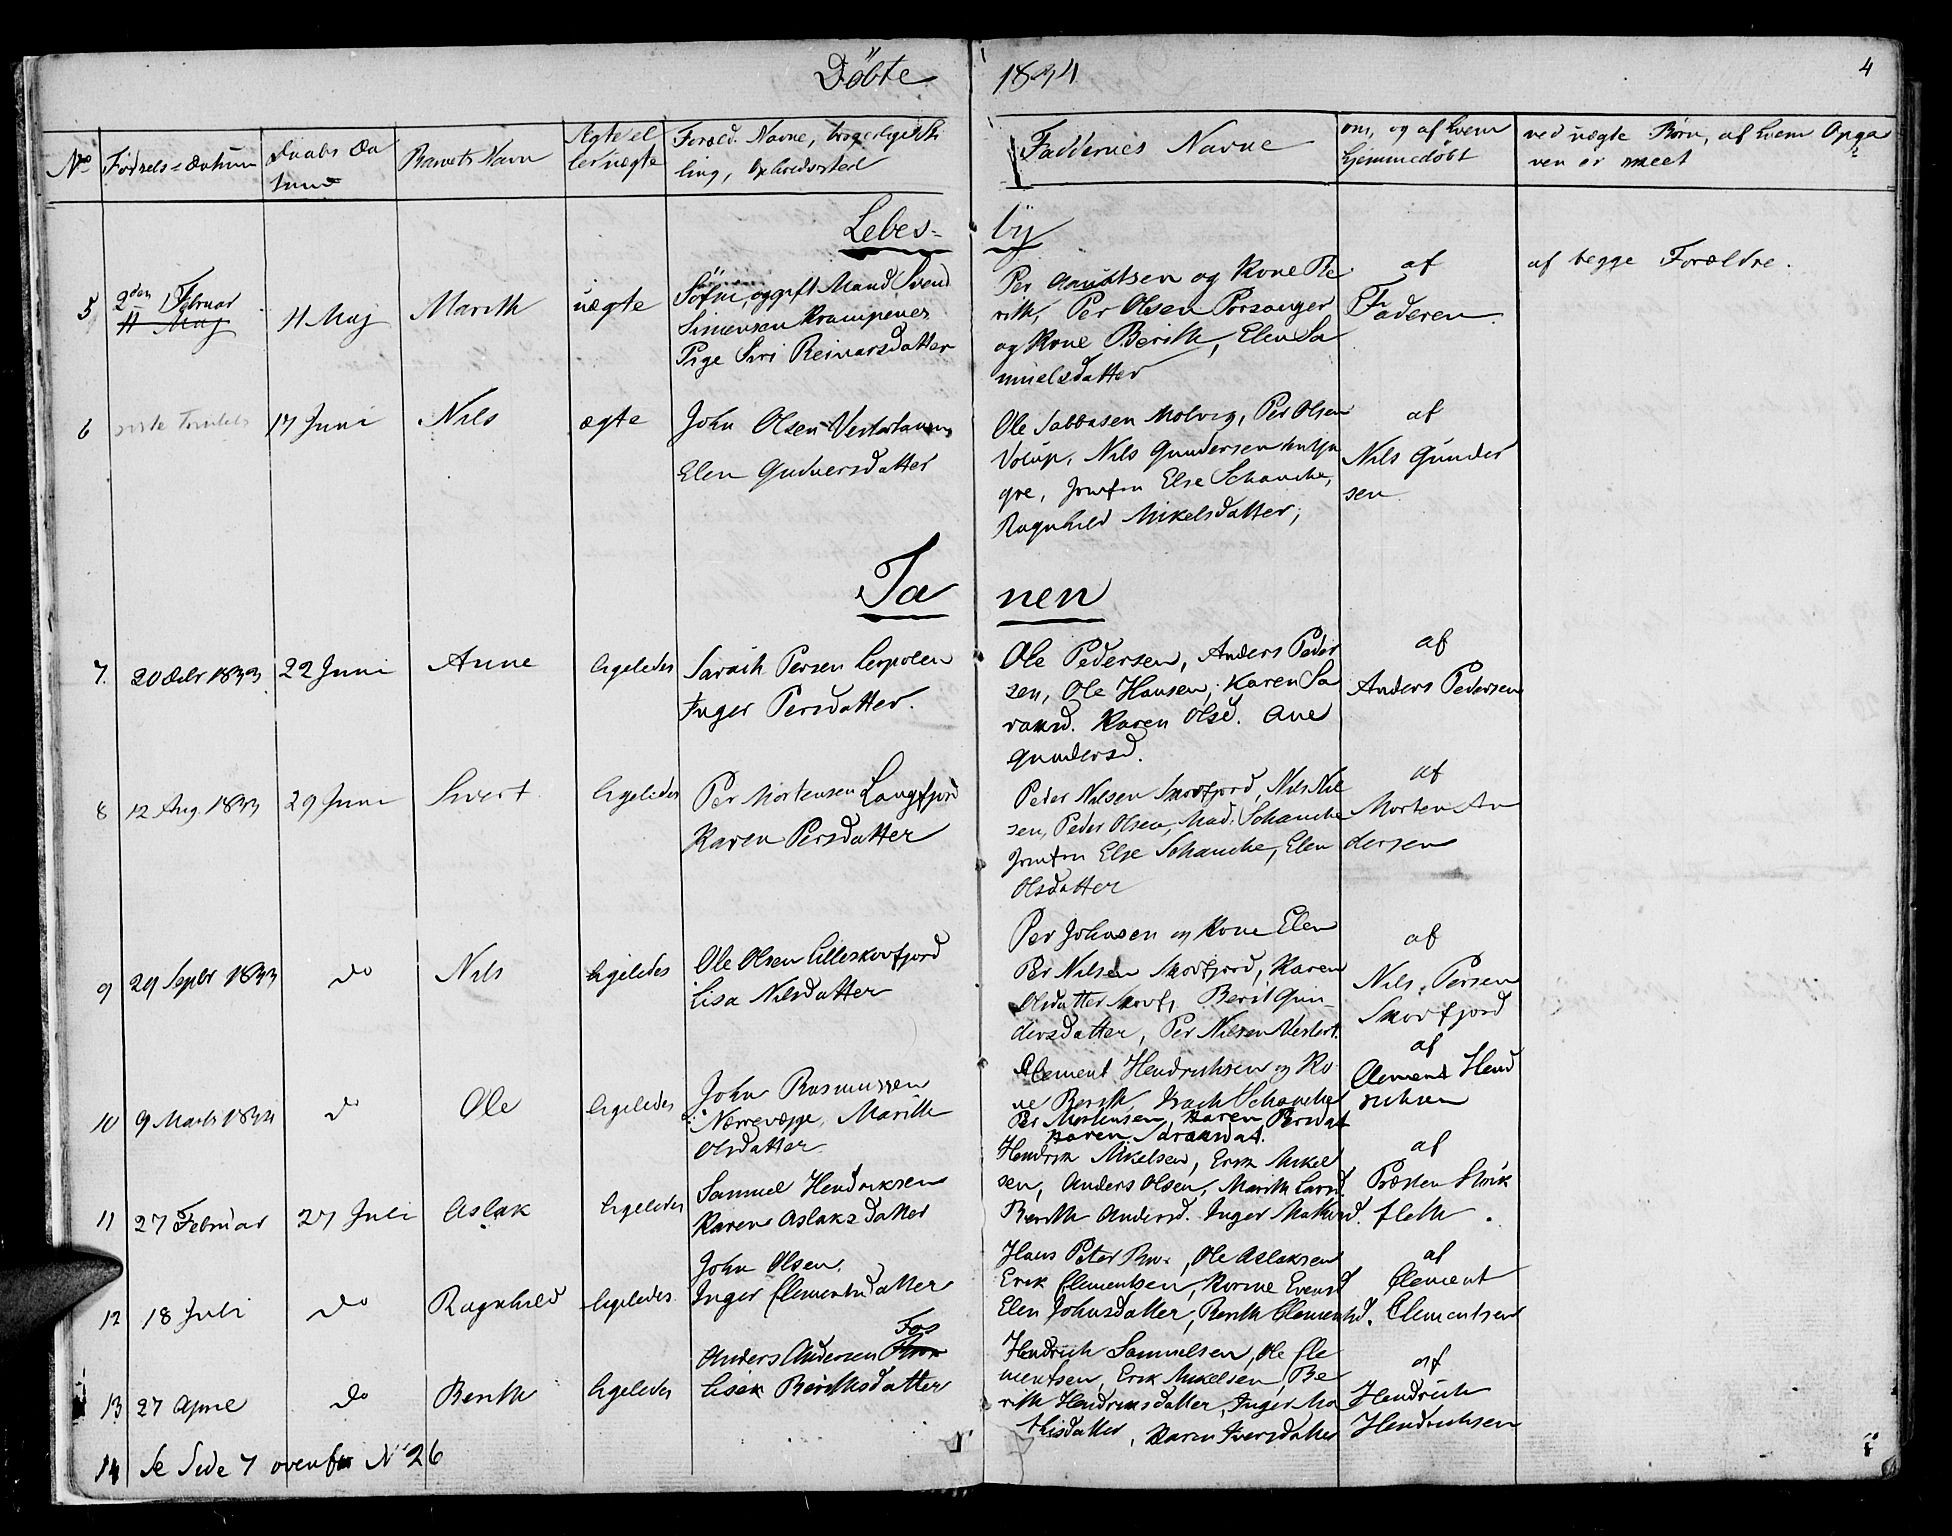 Döbte 1834
4
No
Fødsels=Datum
Daabs Da
tum
Barnets Navn
Ægte el
ler uægte
Foræld. Navne, borgerlige Stil
ling, Opholdssted
Faddernes Navne
om, og af hvem
hjemmedöbt
ved uægte Börn, af hvem Opga
ven er skeet
Lebes=
by
5
2den Februar
11 Maj
11 Maj
Marith
uægte
gift Mand Svend
Simensen
Pige Siri Reinarsdatter
Per Amundsen og Kone Be
rith, Per Olsen Porsanger
og Kone Berith, Elen Sa
muelsdatter
af
Faderen
af begge Forældre.
6
17 Juni
Nils
ægte
John Olsen Vestertanen
Elen Gudnersdatter
Ole Sabbasen Molvig, Per Olsen
Nils Gundersen
Jomfru Else Schanche,
Ragnhild Mikelsdatter,
af
Nils Gunder
sen
Ta
nen
7.
20 Octr 1833
22 Juni
Anne
ligeledes
Persen
Inger Persdatter.
Ole Pedersen, Anders Peder
sen, Ole Hansen, Karen Sa
rausd. Karen Olsd. Ane
Gundersd.
af
Anders Pedersen
8
12 Aug. 1833
29 Juni
Sivert
ligeledes
Per Mortensen Langfjord
Karen Persdatter
Peder Nilsen Smorfjord, Nils Nil
sen, Peder Olsen, Mad. Schanche
Jomfru Else Schanche, Elen
Olsdatter
af
Morten An
dersen
9
29 Septbr 1833
do
Nils
ligeledes
Ole Olsen Lilleskovfjord
Lisa Nilsdatter
Per Johnsen og Kone Elen
Per Nilsen Smorfjord, Karen
Olsdatter Berit Gun-
dersdatter, Per Nilsen Vestert.
af
Nils Persen
Smorfjord
10
9 Marts 1834
do
Ole
ligeledes
John Rasmussen
Marith
Olsdatter
Clement Hendrichsen og Ko
ne Berith, Schanche
Per Mortensen, Karen Persdat
Karen Sarausdat.
af
Clement Hend
richsen
11
27 Februar
27 Juli
Aslak
ligeledes
Samuel Hendriksen
Karen Aslaksdatter
Hendrik Mikelsen, Erik Mikel
sen, Anders Olsen, Marith Larsd.
Berith Andersd. Inger
af
Præsten Stok
fleth.
12
18 Juli
do
Ragnhild
ligeledes
John Olsen.
Inger Clementsdatter
Hans Peter Ole Aslaksen
Erik Clementsen,
Elen Johnsdatter, Berith Clementsd.
af
Clement
Clementsen
13
27 April
do
Berith
ligeledes
Fos
Anders Andersen
Berithsdatter
Hendrich Samuelsen, Ole Cle
mentsen, Erik Mikelsen, Be
rith Hendriksdatter, Inger Ma
thisdatter, Karen Iversdatter
af
Hendrich
Hendrichsen
14
Se Side 7 ovenfor No 26